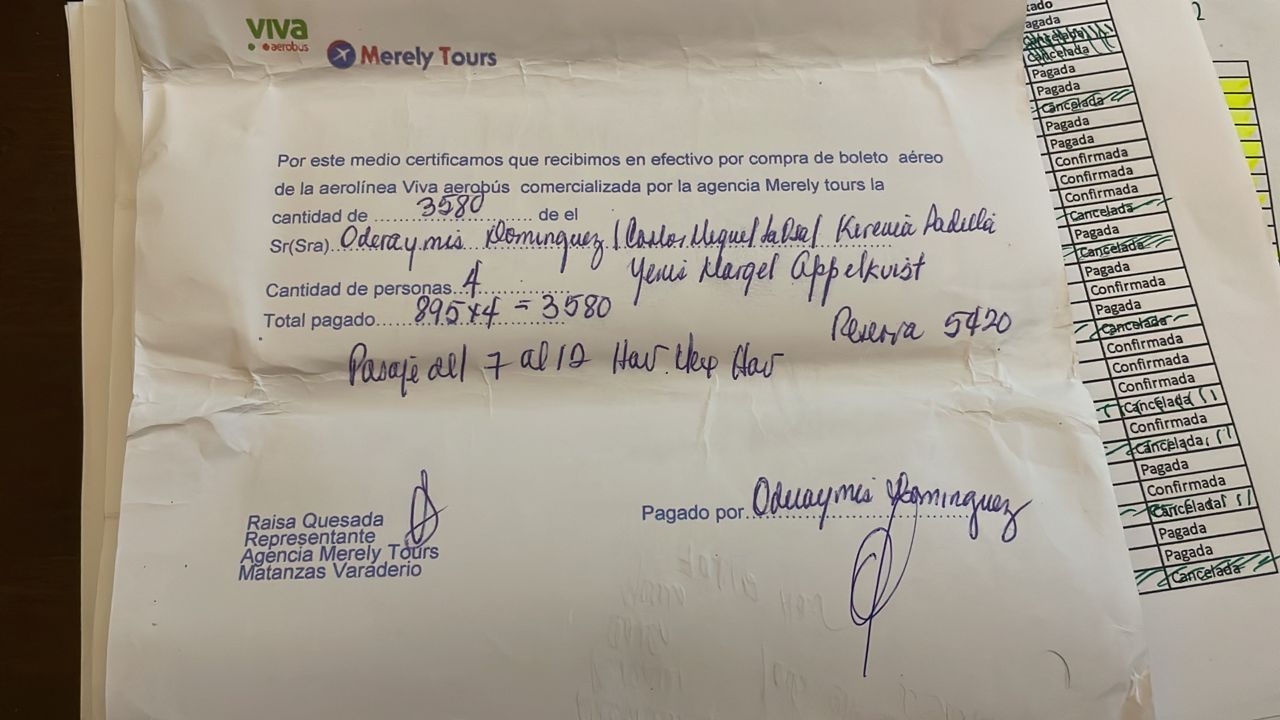 viva
aerobus
Merely Tours
Por este medio certificamos que recibimos en efectivo por compra de boleto aéreo
de la aerolínea Viva aerobús comercializada por la agencia Merely tours la
cantidad de ......3580...... de el
Sr(Sra)..Oderaymis Dominguez / Carlos Miguel Kerenia Padilla
Yenis Margel Appelkvist
Cantidad de personas...4......
Total pagado......895x4 = 3580
Reserva 5420
Pasaje del 7 al 12 Hav. Mex Hav
Raisa Quesada
Representante
Agencia Merely Tours
Matanzas Varaderio
Pagado por...Oderaymis Dominguez
agada
Cancelada
Pagada
Pagada
Cancelada
Pagada
Pagada
Confirmada
Confirmada
Confirmada
Cancelada
Pagada
Cancelada
Pagada
Confirmada
Pagada
Cancelada
Confirmada
Confirmada
Confirmada
Cancelada
Confirmada
Cancelada
Pagada
Confirmada
Cancelada
Pagada
Pagada
Cancelada
2